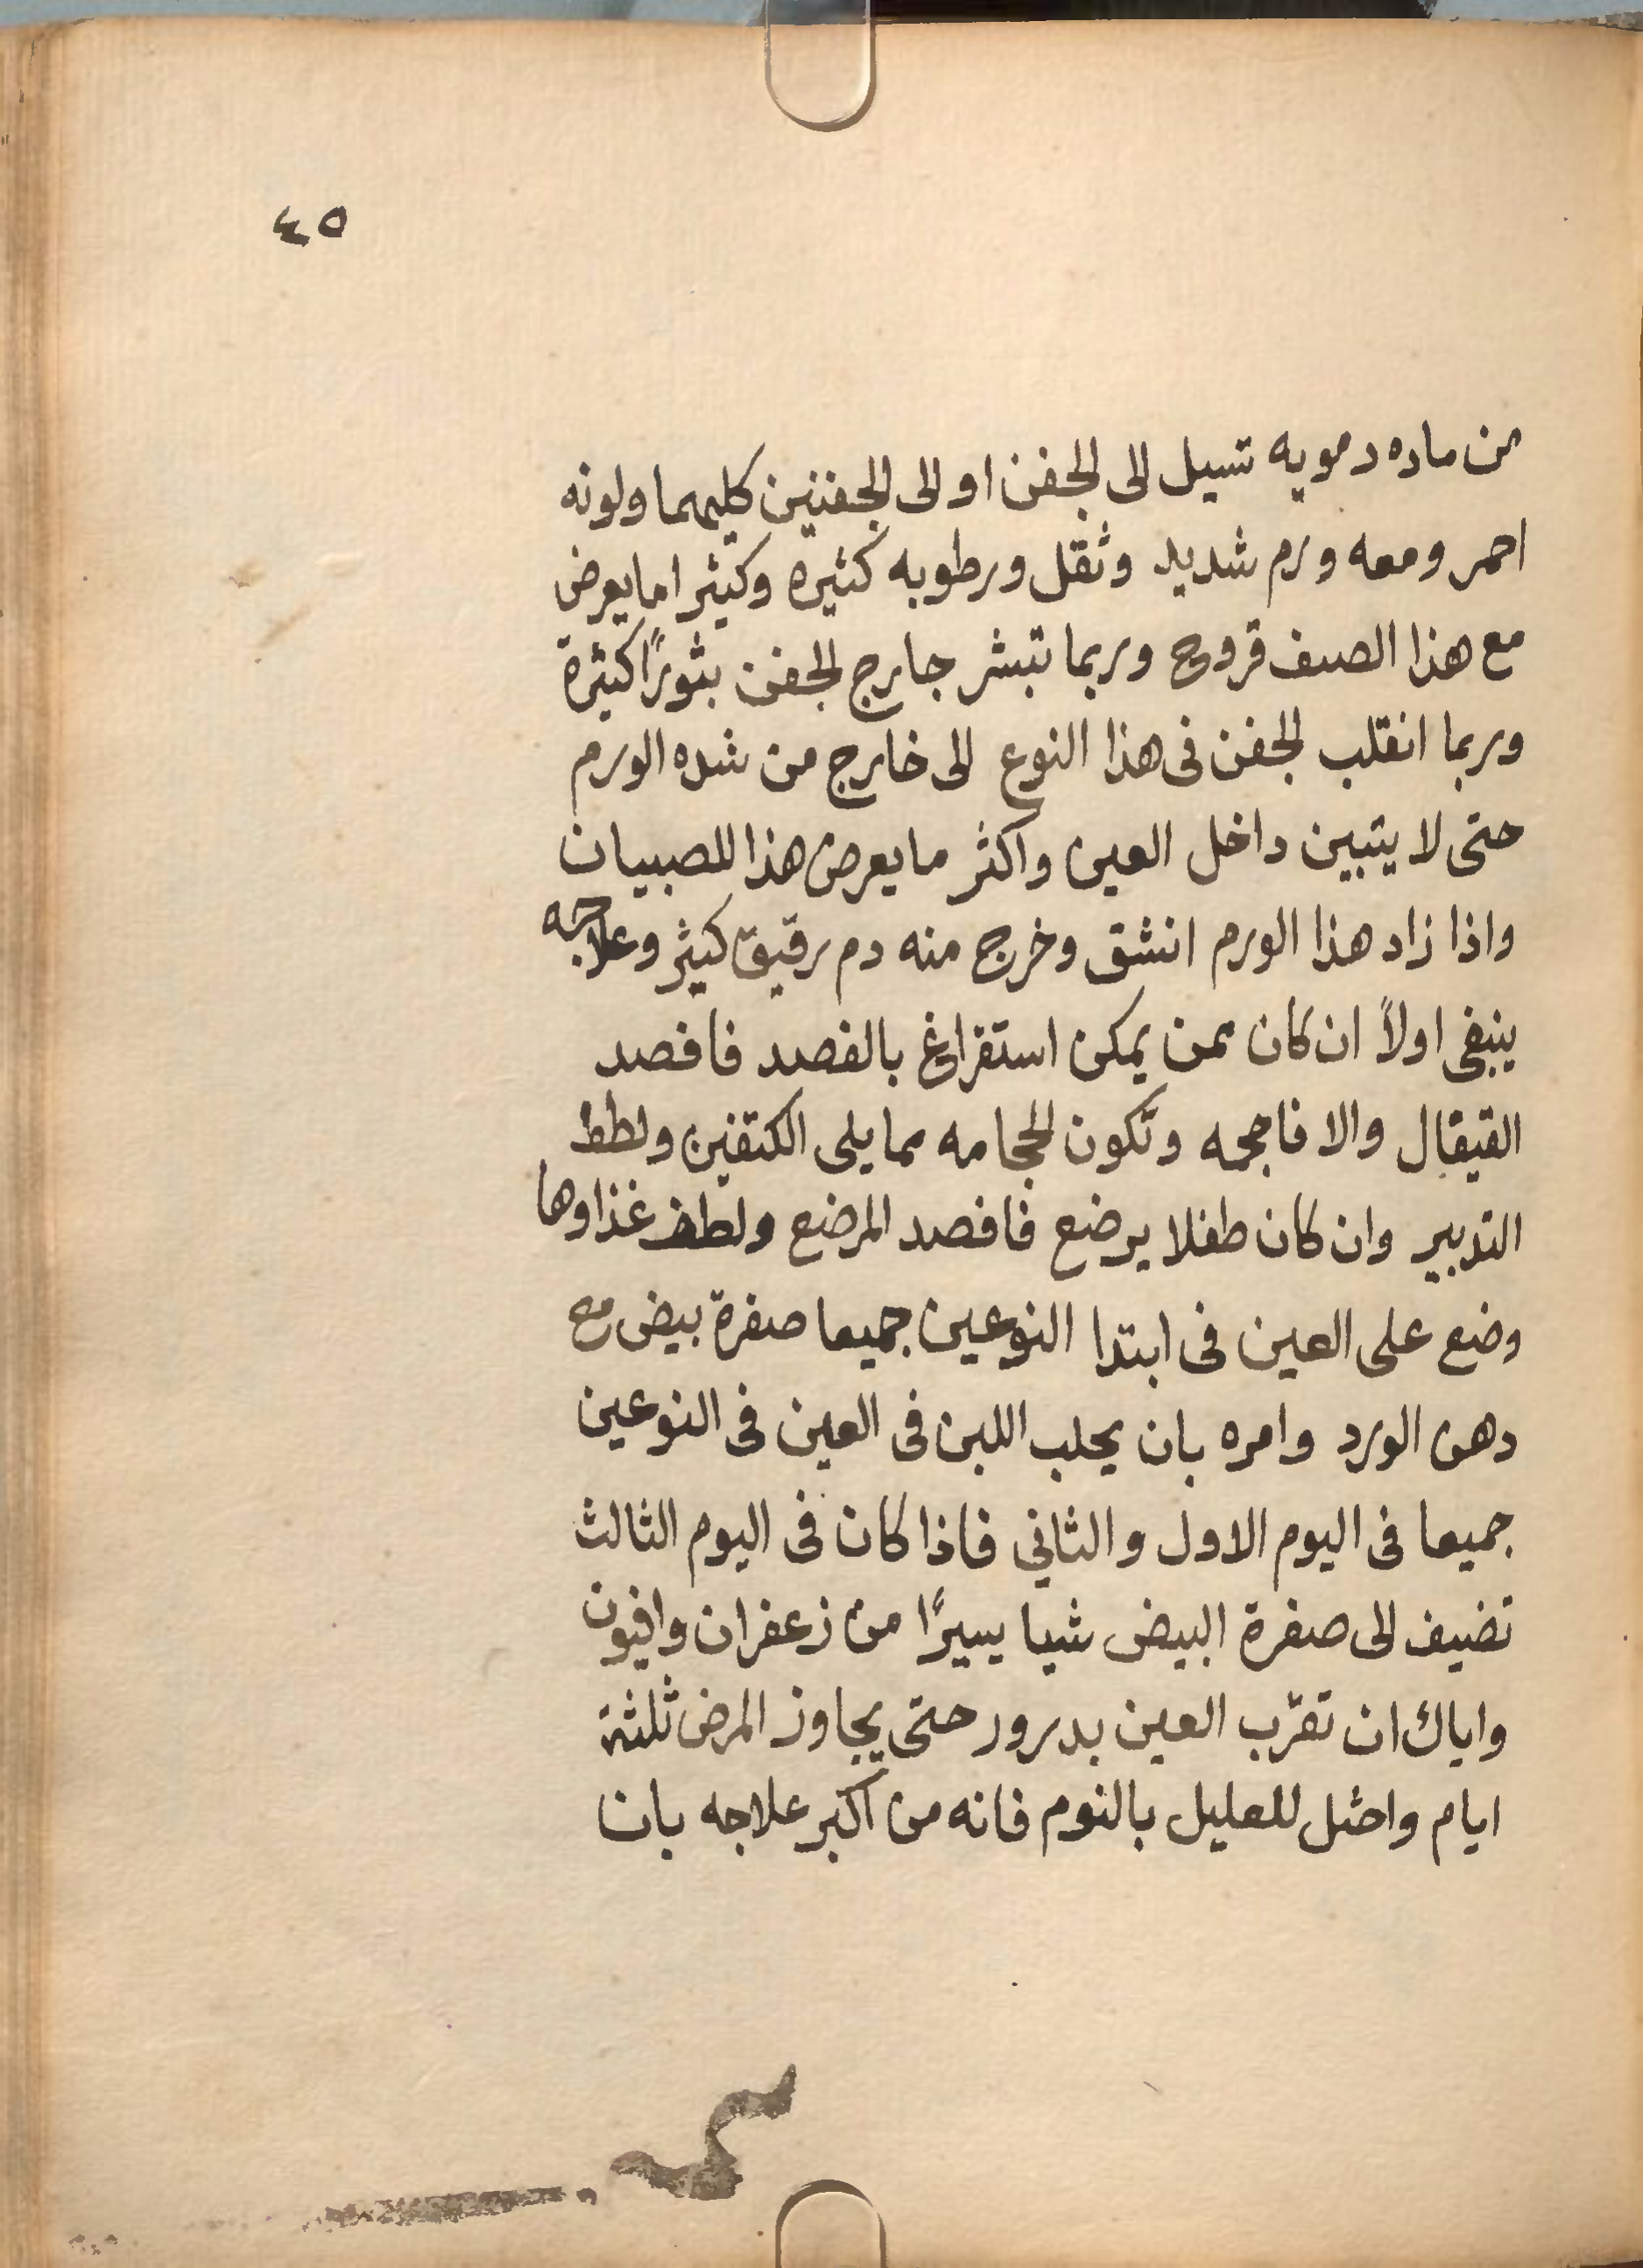 ٤٥
من ماده دمويه تسيل الى الجفن او الى الجفنين كليهما ولونه
احمر ومعه ورم شديد وثقل ورطوبه كثيره وكثيرا ما يعرض
مع هذا الصنف قروح وربما تبثر جارج الجفن بثورًا كثيرة
وربما انقلب الجفن فى هذا النوع الى خارج من شده الورم
حتى لا يتبين داخل العين واكثر ما يعرض هذا للصبيان
واذا زاد هذا الورم انشق وخرج منه دم رقيق كثير وعلاجه
ينبغى اولاً ان كان ممن يمكن استفراغ بالفصد فافصد
القيقال والا فاحجمه وتكون الحجامه مما يلى الكتفين ولطف
التدبير وان كان طفلا يرضع فافصد المرضع ولطف غذاوها
وضع على العين فى ابتدا النوعين جميعا صفرة بيض مع
دهن الورد وامره بان يحلب اللبن فى العين فى النوعين
جميعا فى اليوم الاول والثانى فاذا كان فى اليوم الثالث
تضيف الى صفرة البيض شيا يسيرًا من زعفران وافيون
واياك ان تقرّب العين بدرور حتى يجاوز المرض ثلثة
ايام واحثل للعليل بالنوم فانه من اكبر علاجه بان